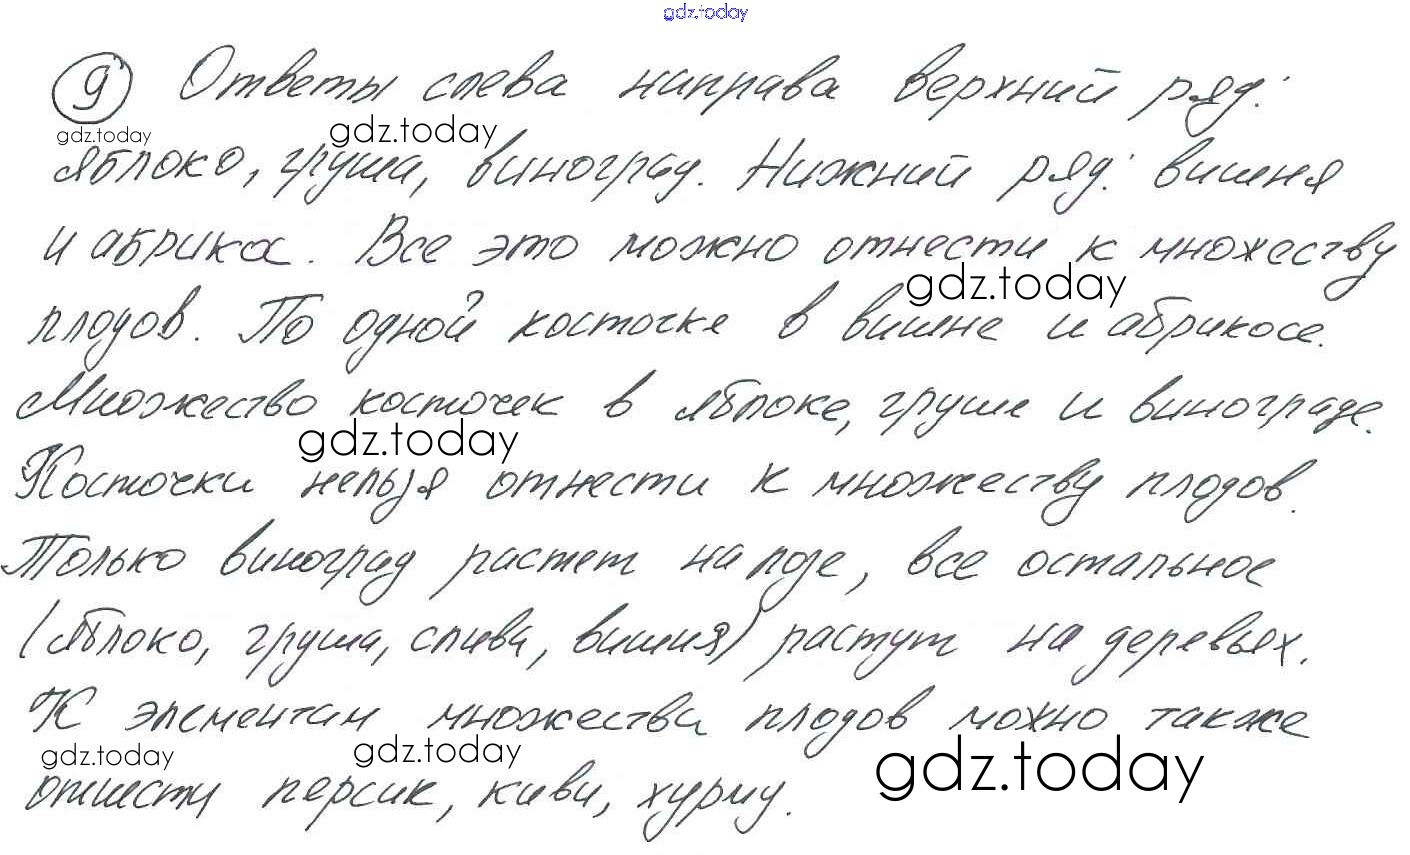 gdz.today
9 Ответы слева направа верхний ряд:
gdz.today gdz.today
яблоко, груша, виноград. Нижний ряд: вишня
и абрикос. Все это можно отнести к множеству
gdz.today
плодов. По одной косточке в вишне и абрикосе.
Множество косточек в яблоке, груше и винограде.
gdz.today
Косточки нельзя отнести к множеству плодов.
Только виноград растет на лозе, все остальное
(яблоко, груша, слива, вишня) растут на деревьях.
К элементам множества плодов можно также
gdz.today gdz.today gdz.today
отнести персик, киви, хурму.